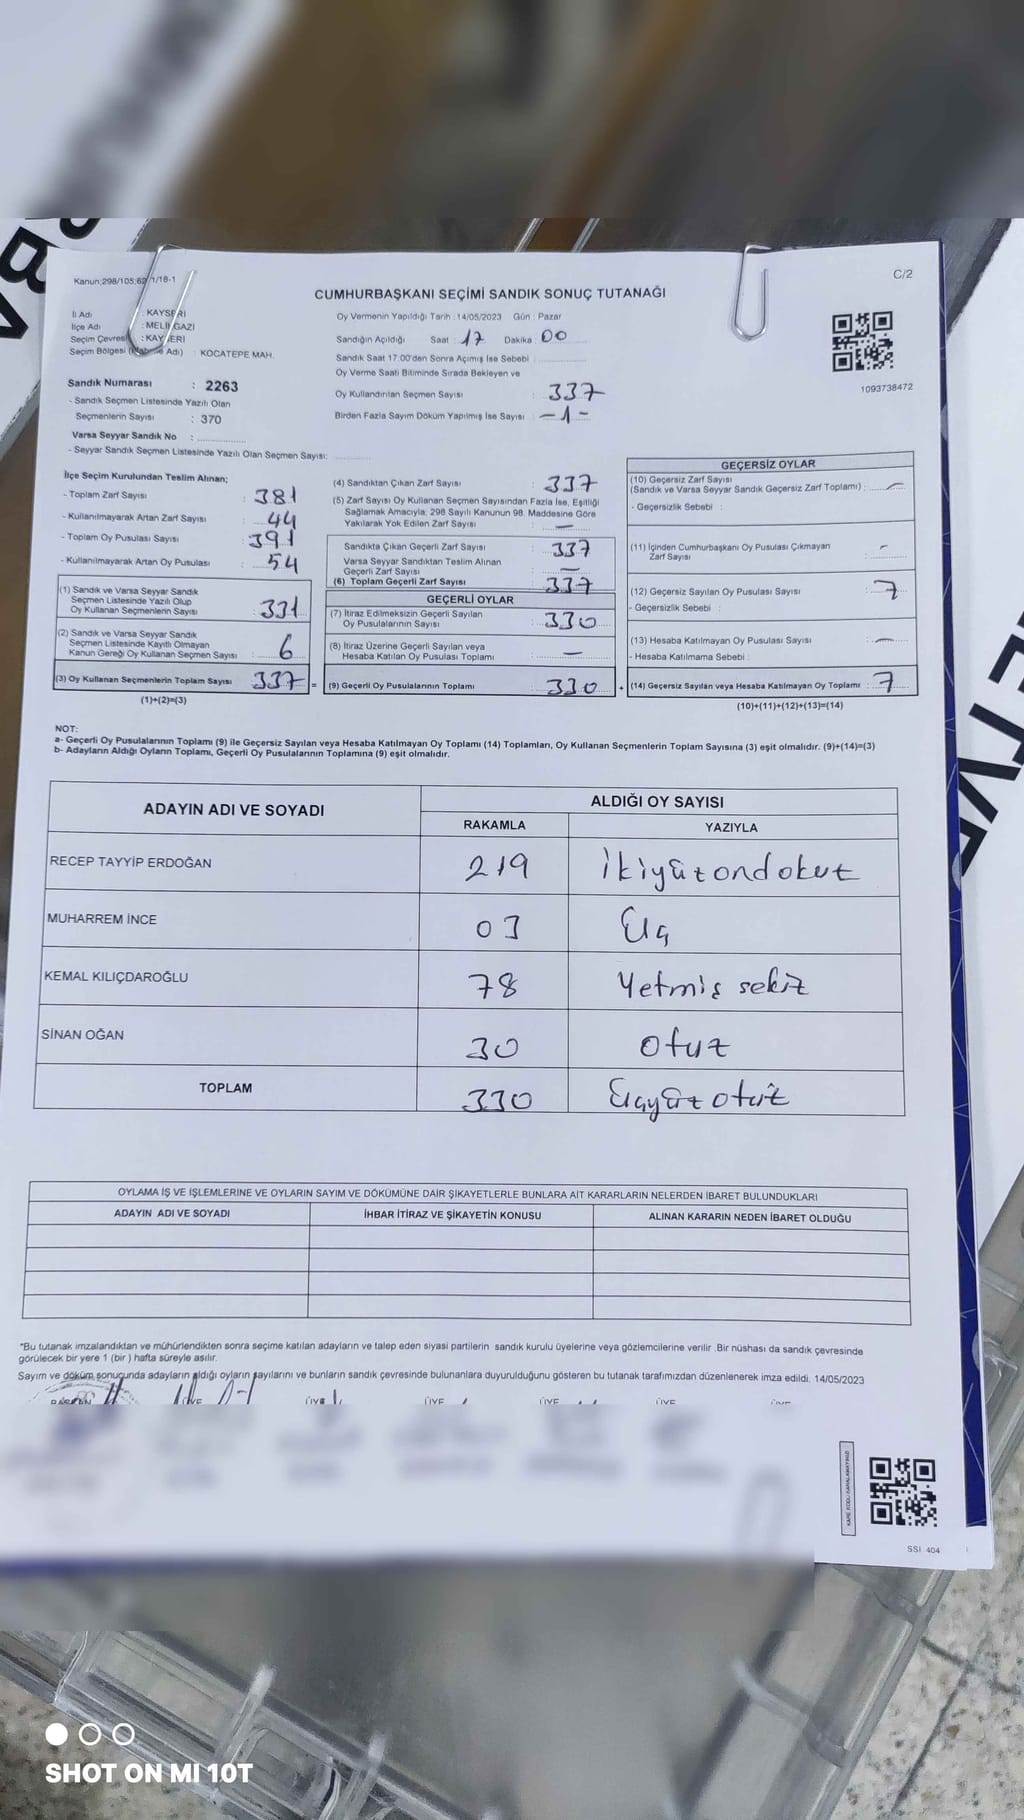 Kanun;298/105;62 1/18-1
C/2
CUMHURBAŞKANI SEÇİMİ SANDIK SONUÇ TUTANAĞI
İl Adı : KAYSERİ
İlçe Adı : MELİKGAZİ
Seçim Çevresi : KAYSERİ
Seçim Bölgesi Adı) : KOCATEPE MAH.
Sandık Numarası : 2263
- Sandık Seçmen Listesinde Yazılı Olan
Seçmenlerin Sayısı : 370
Varsa Seyyar Sandık No :
- Seyyar Sandık Seçmen Listesinde Yazılı Olan Seçmen Sayısı:
Oy Vermenin Yapıldığı Tarih :14/05/2023 Gün : Pazar
Sandığın Açıldığı Saat : 17 Dakika : 00
Sandık Saat 17:00'den Sonra Açımış İse Sebebi :
Oy Verme Saati Bitiminde Sırada Bekleyen ve
Oy Kullandırılan Seçmen Sayısı : 337
Birden Fazla Sayım Döküm Yapılmış İse Sayısı : -1-
1093738472
İlçe Seçim Kurulundan Teslim Alınan;
- Toplam Zarf Sayısı : 381
- Kullanılmayarak Artan Zarf Sayısı : 44
- Toplam Oy Pusulası Sayısı : 391
- Kullanılmayarak Artan Oy Pusulası : 54
(1) Sandık ve Varsa Seyyar Sandık
Seçmen Listesinde Yazılı Olup
Oy Kullanan Seçmenlerin Sayısı : 331
(2) Sandık ve Varsa Seyyar Sandık
Seçmen Listesinde Kayıtlı Olmayan
Kanun Gereği Oy Kullanan Seçmen Sayısı : 6
(3) Oy Kullanan Seçmenlerin Toplam Sayısı : 337 =
(1)+(2)=(3)
(4) Sandıktan Çıkan Zarf Sayısı : 337
(5) Zarf Sayısı Oy Kullanan Seçmen Sayısından Fazla İse, Eşitliği
Sağlamak Amacıyla; 298 Sayılı Kanunun 98. Maddesine Göre
Yakılarak Yok Edilen Zarf Sayısı : —
Sandıkta Çıkan Geçerli Zarf Sayısı : 337
Varsa Seyyar Sandıktan Teslim Alınan
Geçerli Zarf Sayısı : —
(6) Toplam Geçerli Zarf Sayısı : 337
GEÇERLİ OYLAR
(7) İtiraz Edilmeksizin Geçerli Sayılan
Oy Pusulalarının Sayısı : 330
(8) İtiraz Üzerine Geçerli Sayılan veya
Hesaba Katılan Oy Pusulası Toplamı : —
(9) Geçerli Oy Pusulalarının Toplamı : 330 +
GEÇERSİZ OYLAR
(10) Geçersiz Zarf Sayısı
(Sandık ve Varsa Seyyar Sandık Geçersiz Zarf Toplamı) : —
- Geçersizlik Sebebi :
(11) İçinden Cumhurbaşkanı Oy Pusulası Çıkmayan
Zarf Sayısı : -
(12) Geçersiz Sayılan Oy Pusulası Sayısı : 7
- Geçersizlik Sebebi :
(13) Hesaba Katılmayan Oy Pusulası Sayısı : —
- Hesaba Katılmama Sebebi :
(14) Geçersiz Sayılan veya Hesaba Katılmayan Oy Toplamı : 7
(10)+(11)+(12)+(13)=(14)
NOT:
a- Geçerli Oy Pusulalarının Toplamı (9) ile Geçersiz Sayılan veya Hesaba Katılmayan Oy Toplamı (14) Toplamları, Oy Kullanan Seçmenlerin Toplam Sayısına (3) eşit olmalıdır. (9)+(14)=(3)
b- Adayların Aldığı Oyların Toplamı, Geçerli Oy Pusulalarının Toplamına (9) eşit olmalıdır.
ADAYIN ADI VE SOYADI
ALDIĞI OY SAYISI
RAKAMLA YAZIYLA
RECEP TAYYİP ERDOĞAN 219 İkiyüzondokuz
MUHARREM İNCE 03 Üç
KEMAL KILIÇDAROĞLU 78 Yetmiş sekiz
SİNAN OĞAN 30 otuz
TOPLAM 330 Üçyüz otuz
OYLAMA İŞ VE İŞLEMLERİNE VE OYLARIN SAYIM VE DÖKÜMÜNE DAİR ŞİKAYETLERLE BUNLARA AİT KARARLARIN NELERDEN İBARET BULUNDUKLARI
ADAYIN ADI VE SOYADI İHBAR İTİRAZ VE ŞİKAYETİN KONUSU ALINAN KARARIN NEDEN İBARET OLDUĞU
*Bu tutanak imzalandıktan ve mühürlendikten sonra seçime katılan adayların ve talep eden siyasi partilerin sandık kurulu üyelerine veya gözlemcilerine verilir .Bir nüshası da sandık çevresinde
görülecek bir yere 1 (bir ) hafta süreyle asılır.
Sayım ve döküm sonucunda adayların aldığı oyların sayılarını ve bunların sandık çevresinde bulunanlara duyurulduğunu gösteren bu tutanak tarafımızdan düzenlenerek imza edildi. 14/05/2023
BAŞKAN ÜYE ÜYE ÜYE ÜYE ÜYE
SSI 404
SHOT ON MI 10T